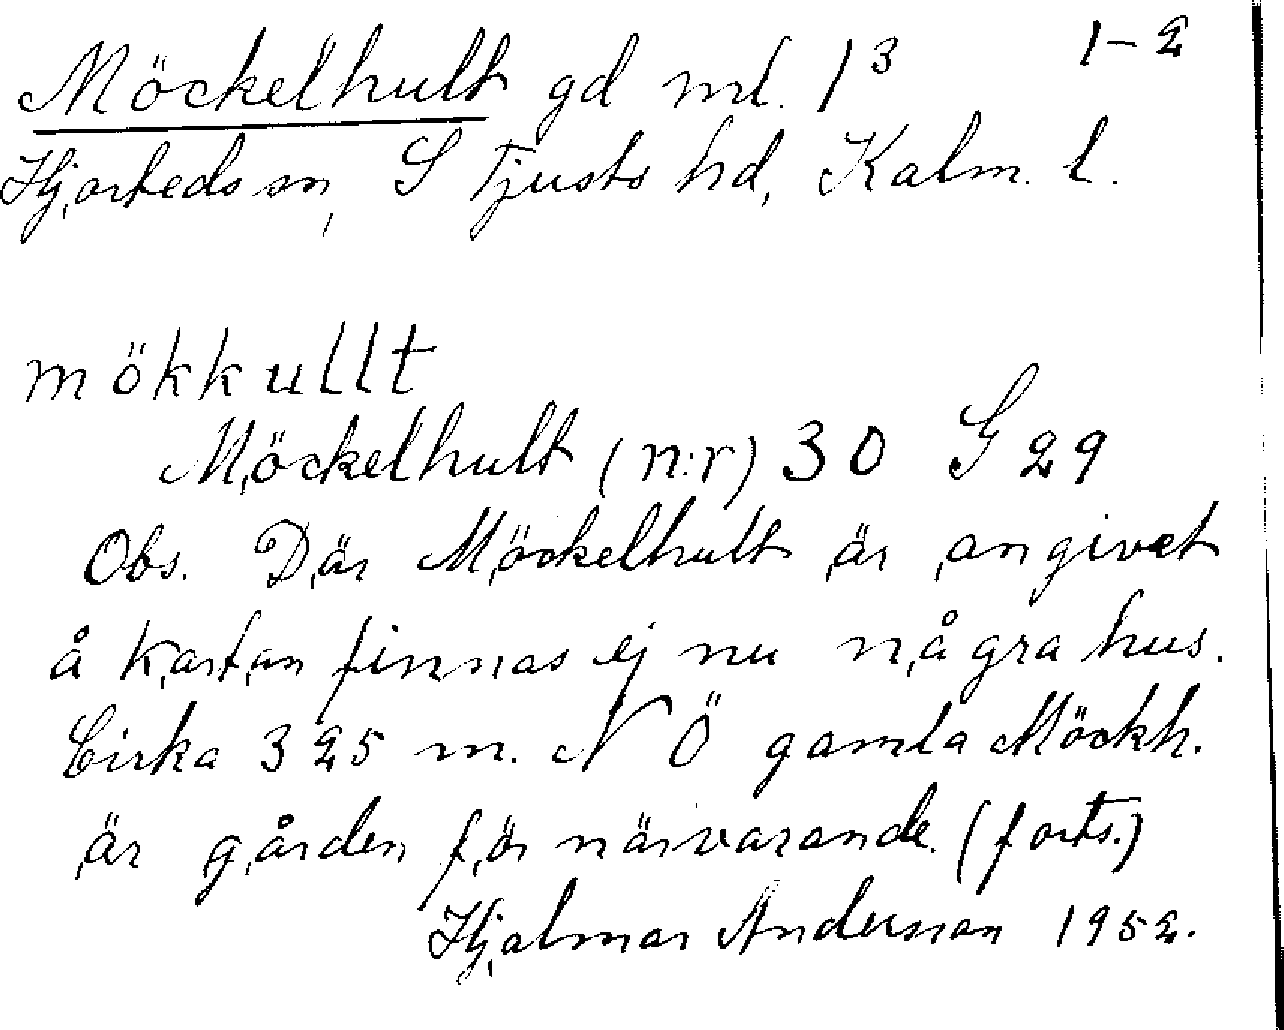 Möckelhult gd ml. 1³ 1-2
Hjorteds sn, S Tjusts hd, Kalm. l.
mökkullt
Möckelhult (n:r) 30 G 29
Obs. Där Möckelhult är angivet
å kartan finnas ej nu några hus.
Cirka 325 m. NÖ gamla Möckh.
är gården för närvarande. (forts.)
Hjalmar Andersson 1952.